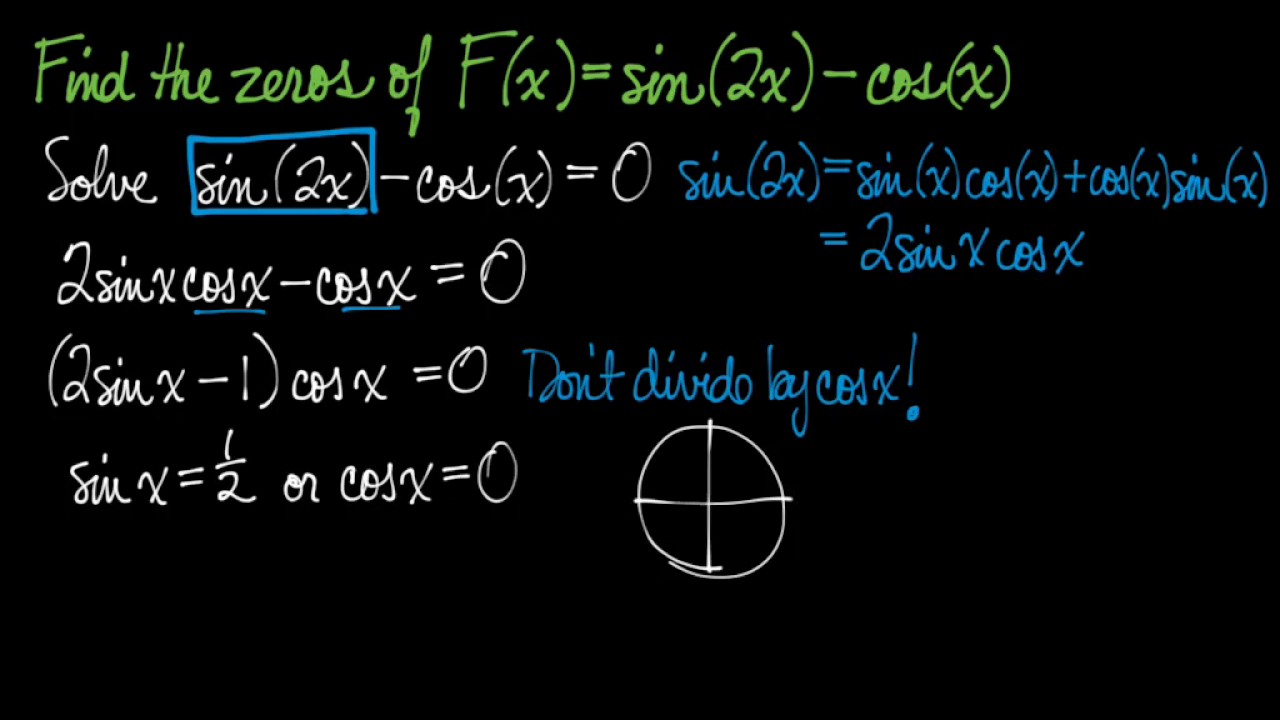 Find the zeros of F(x)=sin(2x)-cos(x)
Solve sin(2x)-cos(x)=0
sin(2x)=sin(x)cos(x)+cos(x)sin(x)
=2sinxcosx
2sinxcosx-cosx=0
(2sinx-1)cosx=0
Don't divide by cosx!
sinx=1/2 or cosx=0